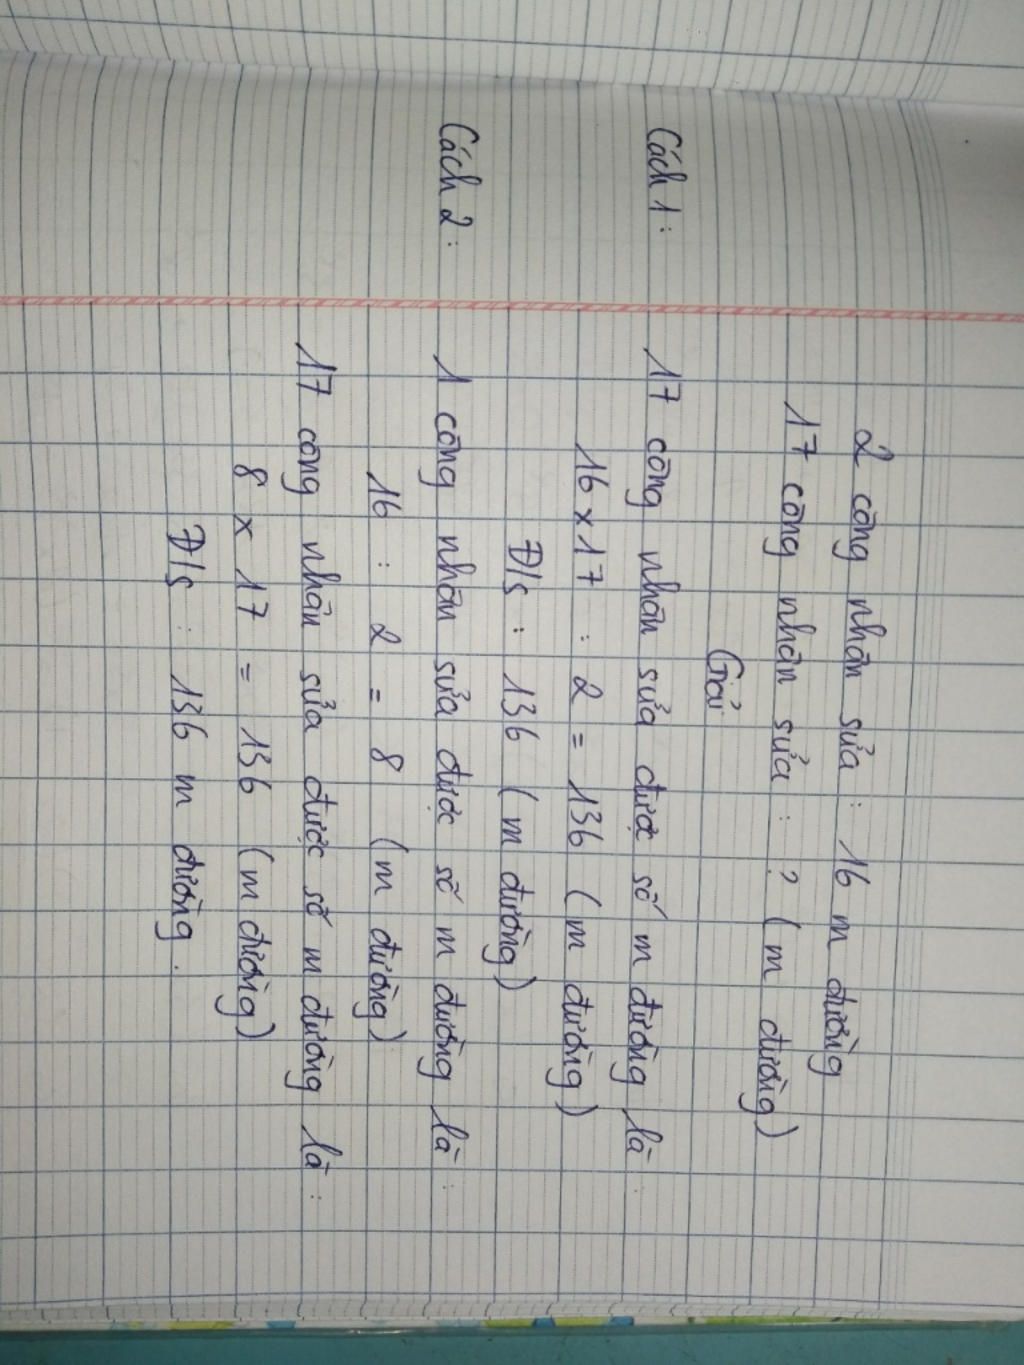 2 công nhân sửa : 16 m đường
17 công nhân sửa : ? ( m đường)
Giải
Cách 1 : 17 công nhân sửa được số m đường là :
16 x 17 : 2 = 136 ( m đường )
Đ/s : 136 ( m đường)
Cách 2 : 1 công nhân sửa được số m đường là :
16 : 2 = 8 (m đường)
17 công nhân sửa được số m đường là :
8 x 17 = 136 (m đường)
Đ/s : 136 m đường.